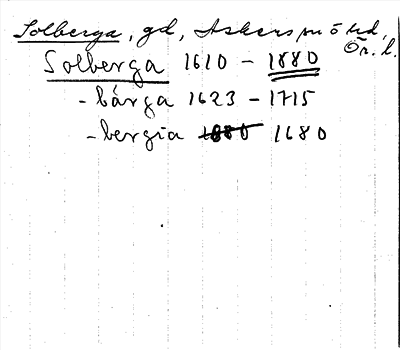 Solberga, gd, Askers sn ö hd,
Ör. l.
Solberga 1610 – 1880
- bärga 1623 – 1715
- bergia 1680 1680